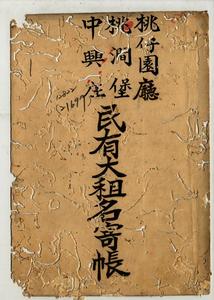 桃仔園廳
桃澗堡
中興庄
民有大租名寄帳